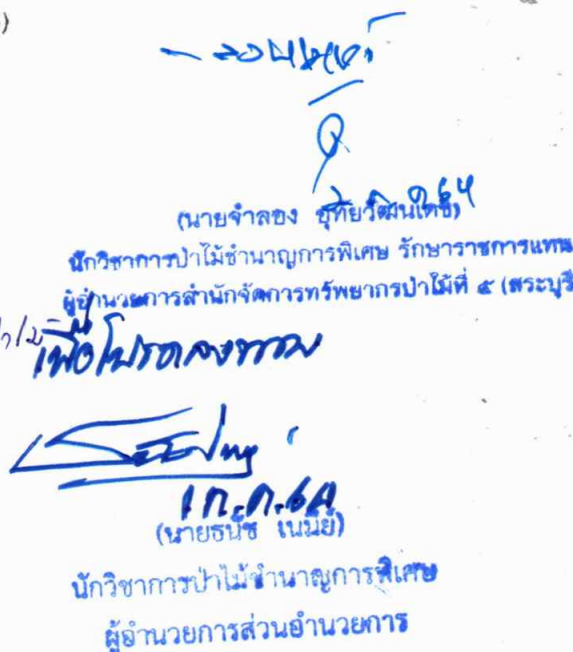 (นายจำลอง อุทัยวัฒนเดช)
นักวิชาการป่าไม้ชำนาญการพิเศษ รักษาราชการแทน
ผู้อำนวยการสำนักจัดการทรัพยากรป่าไม้ที่ ๕ (สระบุรี
เพื่อโปรดลงนาม
(นายธนัช เนมีย์)
นักวิชาการป่าไม้ชำนาญการพิเศษ
ผู้อำนวยการส่วนอำนวยการ